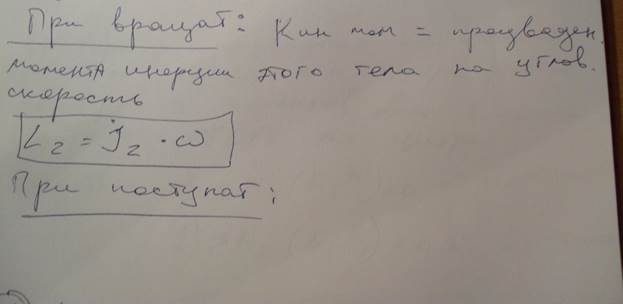 При вращат: Кин мом = произведен.
момента инерции этого тела на углов.
скорость
L z = J z · ω
При поступат: